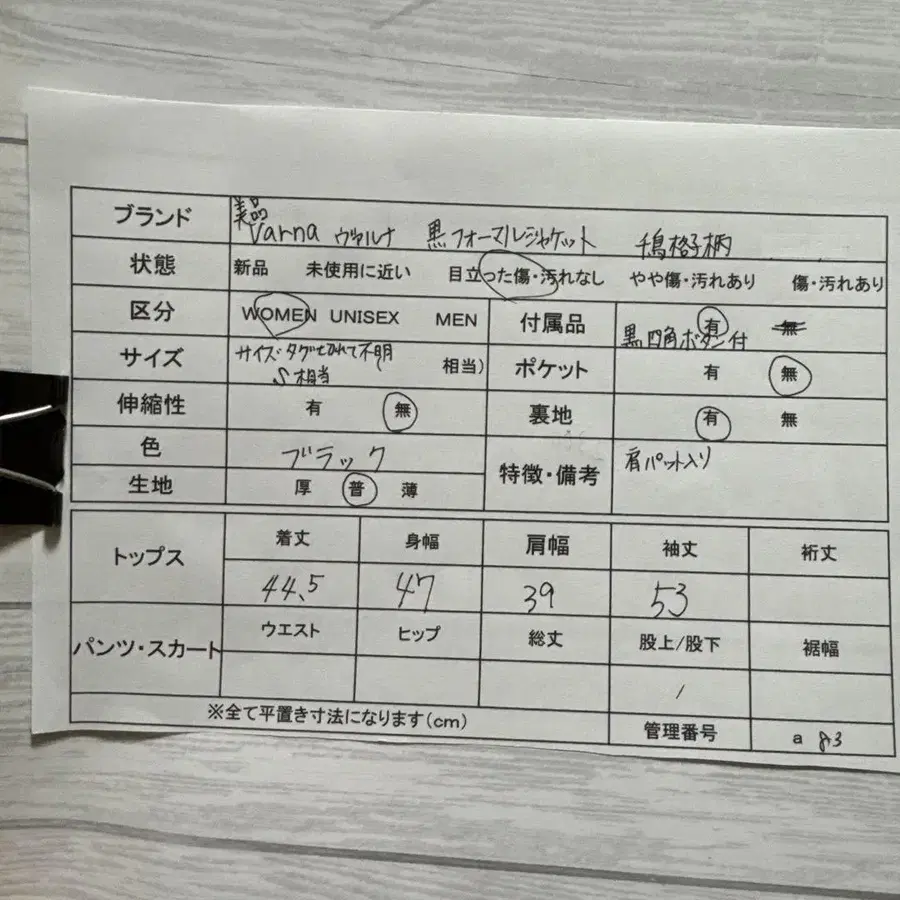 ブランド 美品
Varna ヴァルナ 黒フォーマルジャケット 千鳥格子柄
状態 新品 未使用に近い 目立った傷・汚れなし やや傷・汚れあり 傷・汚れあり
区分 WOMEN UNISEX MEN 付属品 有 無
黒四角ボタン付
サイズ サイズ:タグ切れて不明 相当) ポケット 有 無
S相当
伸縮性 有 無 裏地 有 無
色 ブラック 特徴・備考 肩パット入り
生地 厚 普 薄
トップス 着丈 身幅 肩幅 袖丈 裄丈
44.5 47 39 53
パンツ・スカート ウエスト ヒップ 総丈 股上/股下 裾幅
/
※全て平置き寸法になります(cm) 管理番号 a 83